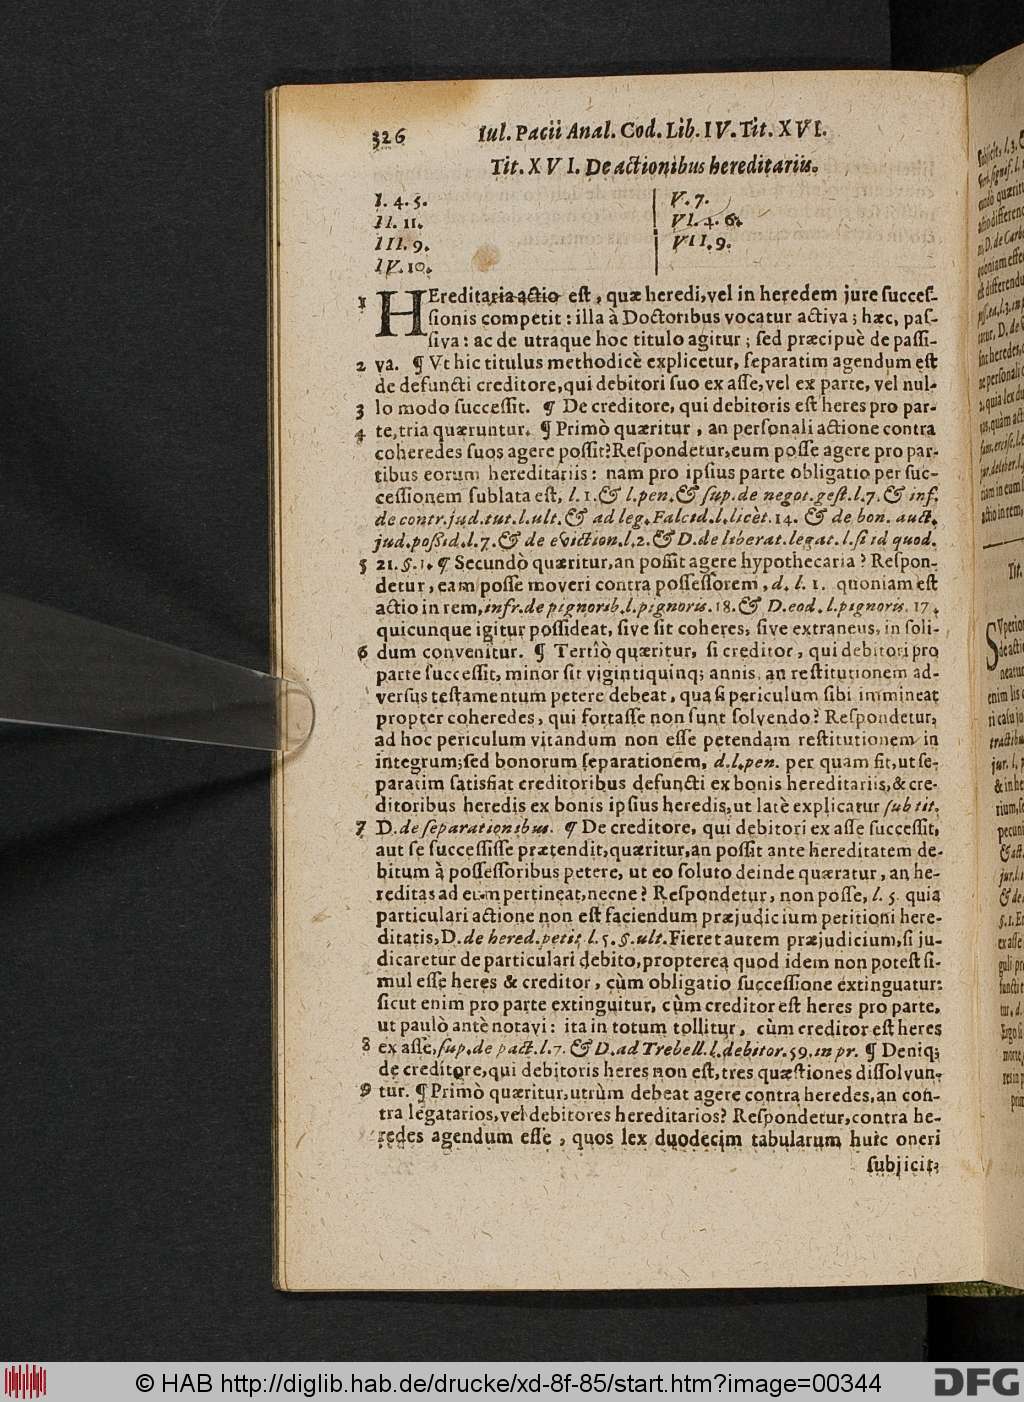 326 Iul. Pacii Anal. Cod. Lib. IV. Tit. XVI.
Tit. XVI. De actionibus hereditariis.
I. 4. 5.
II. 11.
III. 9.
IV. 10.
V. 7.
VI. 4. 6.
VII. 9.
1 HEreditaria actio est, quæ heredi, vel in heredem jure succes-
sionis competit: illa à Doctoribus vocatur activa; hæc, pas-
siva: ac de utraque hoc titulo agitur; sed præcipuè de passi-
2 va. ¶ Ut hic titulus methodicè explicetur, separatim agendum est
de defuncti creditore, qui debitori suo ex asse, vel ex parte, vel nul-
3 lo modo successit. ¶ De creditore, qui debitoris est heres pro par-
4 te, tria quæruntur. ¶ Primò quæritur, an personali actione contra
coheredes suos agere possit? Respondetur, eum posse agere pro par-
tibus eorum hereditariis: nam pro ipsius parte obligatio per suc-
cessionem sublata est, l. 1. & l. pen. & sup. de negot. gest. l. 7. & inf.
de contr. jud. tut. l. ult. & ad leg. Falcid. l. licèt. 14. & de bon. auct.
jud. possid. l. 7. & de eviction. l. 2. & D. de liberat. legat. l. si id quod.
5 21. §. 1. ¶ Secundò quæritur, an possit agere hypothecaria? Respon-
detur, eam posse moveri contra possessorem, d. l. 1. quoniam est
actio in rem, infr. de pignorib. l. pignoris. 18. & D. eod. l. pignoris. 17.
quicunque igitur possideat, sive sit coheres, sive extraneus, in soli-
6 dum convenitur. ¶ Tertiò quæritur, si creditor, qui debitori pro
parte successit, minor sit vigintiquinq; annis, an restitutionem ad-
versus testamentum petere debeat, quasi periculum sibi immineat
propter coheredes, qui fortasse non sunt solvendo? Respondetur,
ad hoc periculum vitandum non esse petendam restitutionem in
integrum; sed bonorum separationem, d. l. pen. per quam fit, ut se-
paratim satisfiat creditoribus defuncti ex bonis hereditariis, & cre-
ditoribus heredis ex bonis ipsius heredis, ut latè explicatur sub tit.
7 D. de separationibus. ¶ De creditore, qui debitori ex asse successit,
aut se successisse prætendit, quæritur, an possit ante hereditatem de-
bitum à possessoribus petere, ut eo soluto deinde quæratur, an he-
reditas ad eum pertineat, necne? Respondetur, non posse, l. 5. quia
particulari actione non est faciendum præjudicium petitioni here-
ditatis, D. de hered. petit. l. 5. §. ult. Fieret autem præjudicium, si ju-
dicaretur de particulari debito, propterea quod idem non potest si-
mul esse heres & creditor, cùm obligatio successione extinguatur:
sicut enim pro parte extinguitur, cùm creditor est heres pro parte,
ut paulò antè notavi: ita in totum tollitur, cùm creditor est heres
8 ex asse, sup. de pact. l. 7. & D. ad Trebell. l. debitor. 59. in pr. ¶ Deniq;
de creditore, qui debitoris heres non est, tres quæstiones dissolvun-
9 tur. ¶ Primò quæritur, utrùm debeat agere contra heredes, an con-
tra legatarios, vel debitores hereditarios? Respondetur, contra he-
redes agendum esse, quos lex duodecim tabularum huic oneri
subjicit;
© HAB http://diglib.hab.de/drucke/xd-8f-85/start.htm?image=00344
DFG